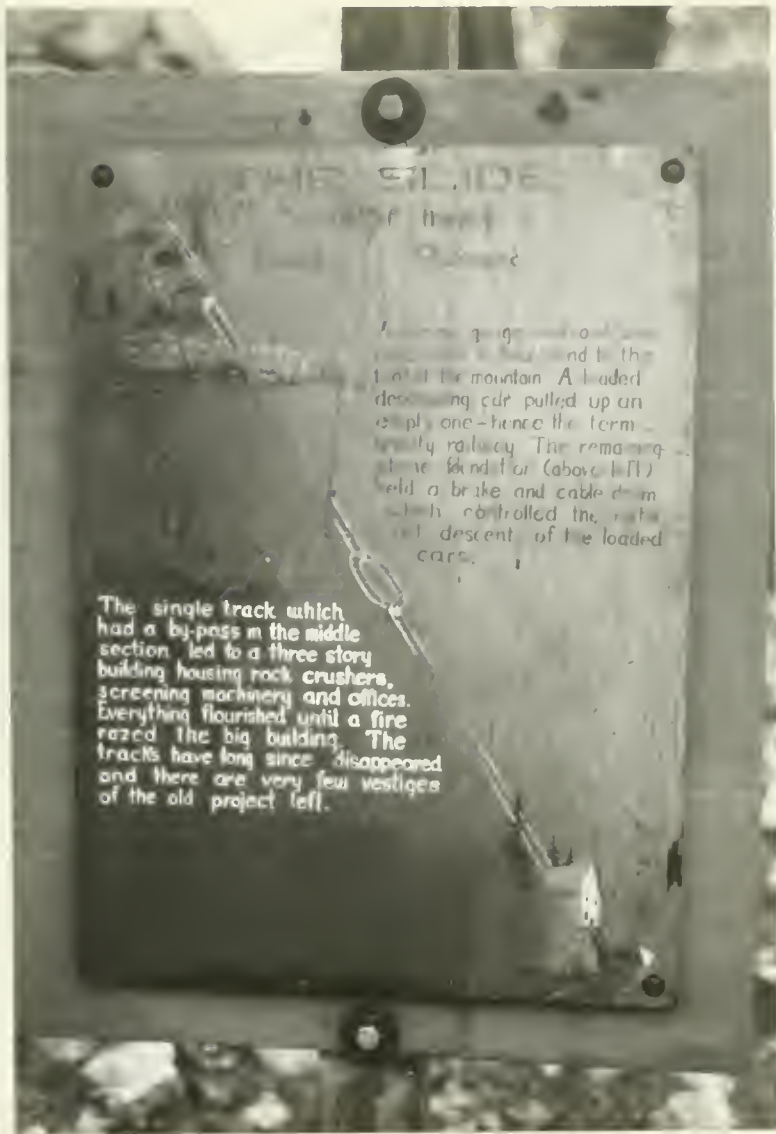 THE SLIDE
of the
and to the
the mountain. A loaded
descending car pulled up an
empty one - hence the term
gravity railway. The remaining
stone (above left)
held a brake and cable drum
which controlled the
descent of the loaded
cars.
The single track which
had a by-pass in the middle
section led to a three story
building housing rock crushers,
screening machinery and offices.
Everything flourished until a fire
razed the big building. The
tracks have long since disappeared
and there are very few vestiges
of the old project left.